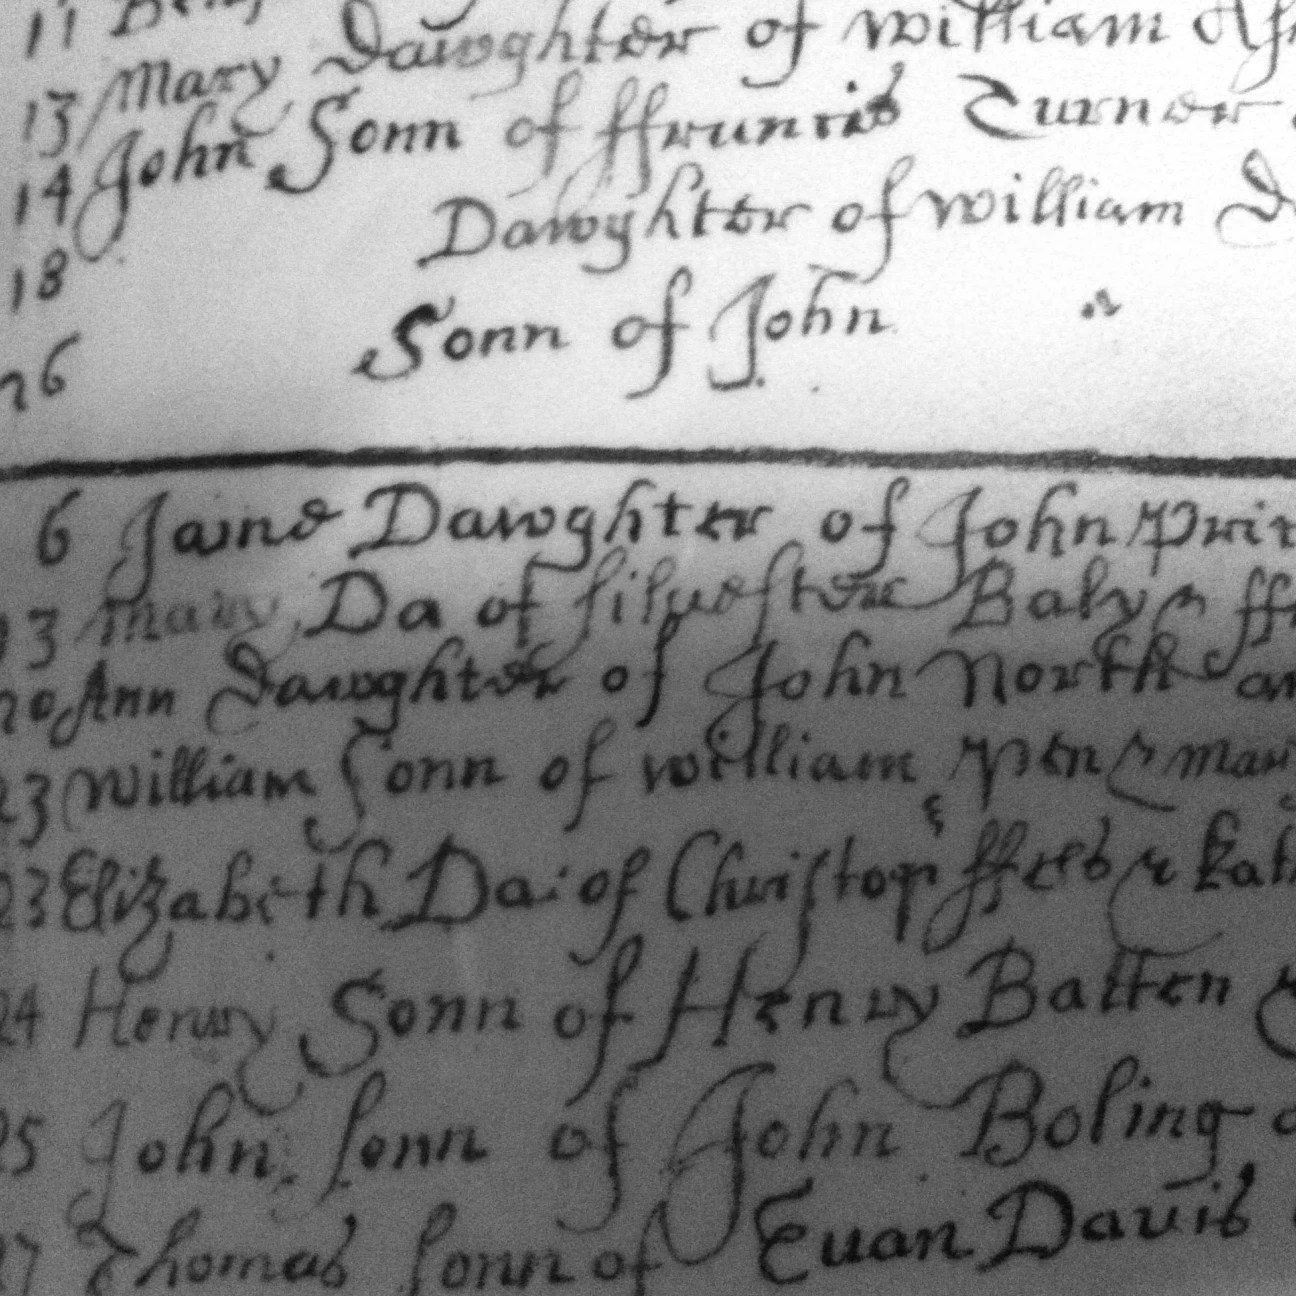 11
13 Mary Dawghter of William
14 John Sonn of ffruncis Turner
18 Dawghter of William
26 Sonn of John
6 Jane Dawghter of John
13 Mary Da of siluester Baly &
20 Ann Dawghter of John North
23 William Sonn of william Pen & Mary
23 Elizabeth Da: of Christopr ffrees &
24 Henry Sonn of Henry Batten &
25 John sonn of John Boling
27 Thomas sonn of Euan Dauis